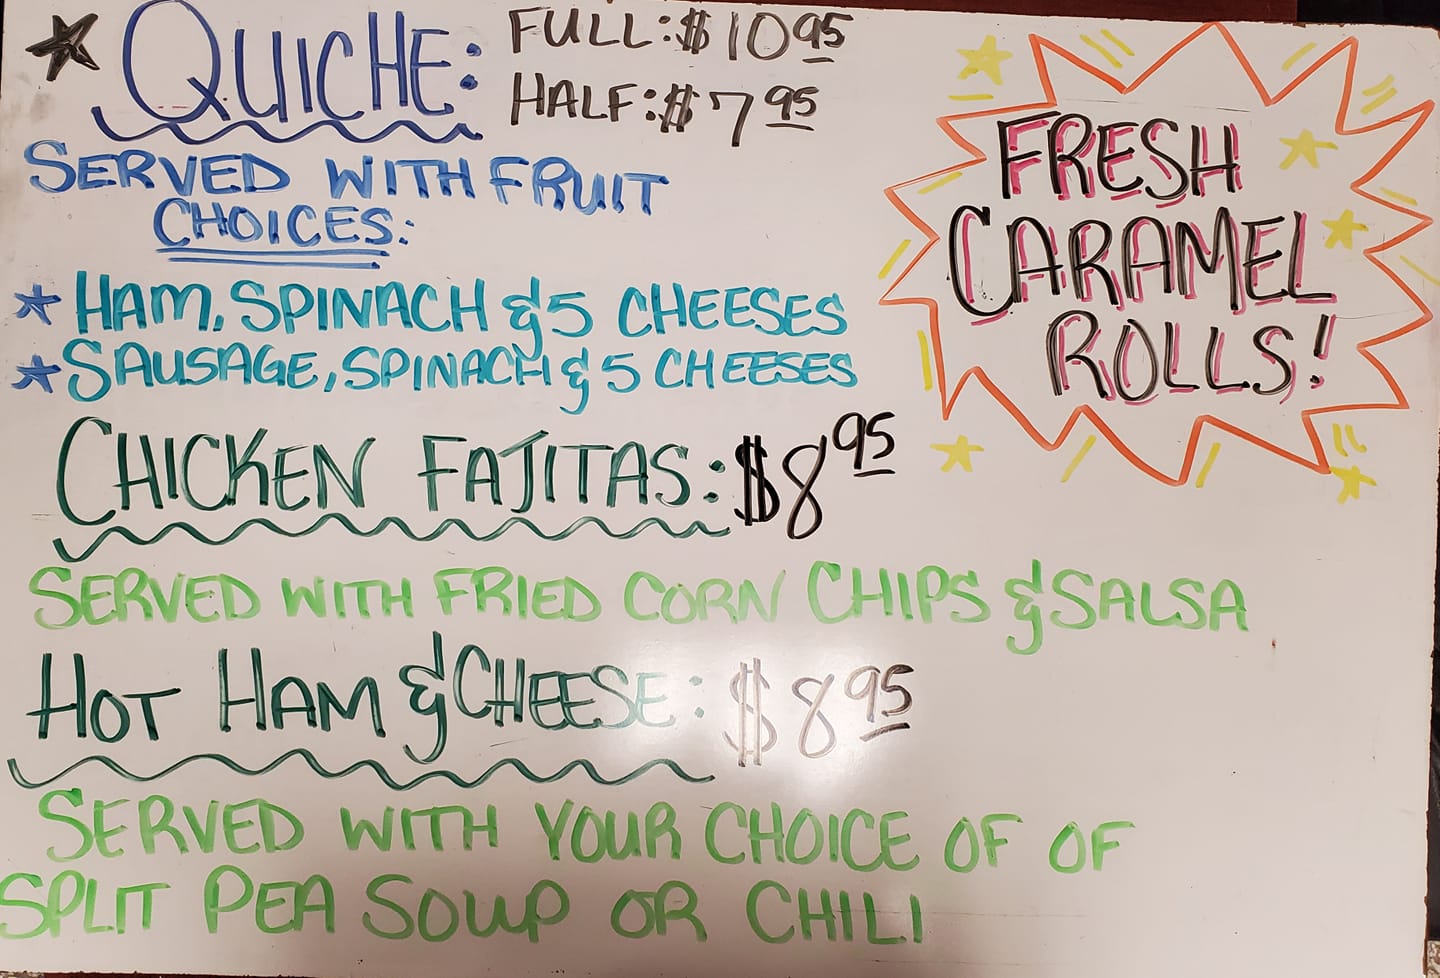 ★ QUICHE: FULL: $10.95
HALF: $7.95
SERVED WITH FRUIT
CHOICES:
★ HAM, SPINACH & 5 CHEESES
★ SAUSAGE, SPINACH & 5 CHEESES
CHICKEN FAJITAS: $8.95
SERVED WITH FRIED CORN CHIPS & SALSA
HOT HAM & CHEESE: $8.95
SERVED WITH YOUR CHOICE OF OF
SPLIT PEA SOUP OR CHILI
FRESH
CARAMEL
ROLLS!